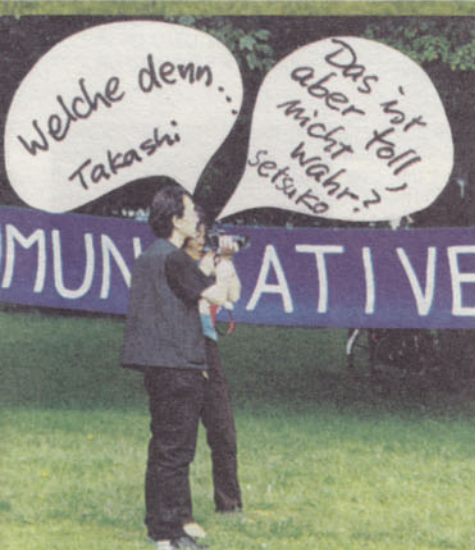 Welche denn...
Takashi
Das ist
aber toll,
nicht
wahr?
Setsuko
OMUN ATIVE